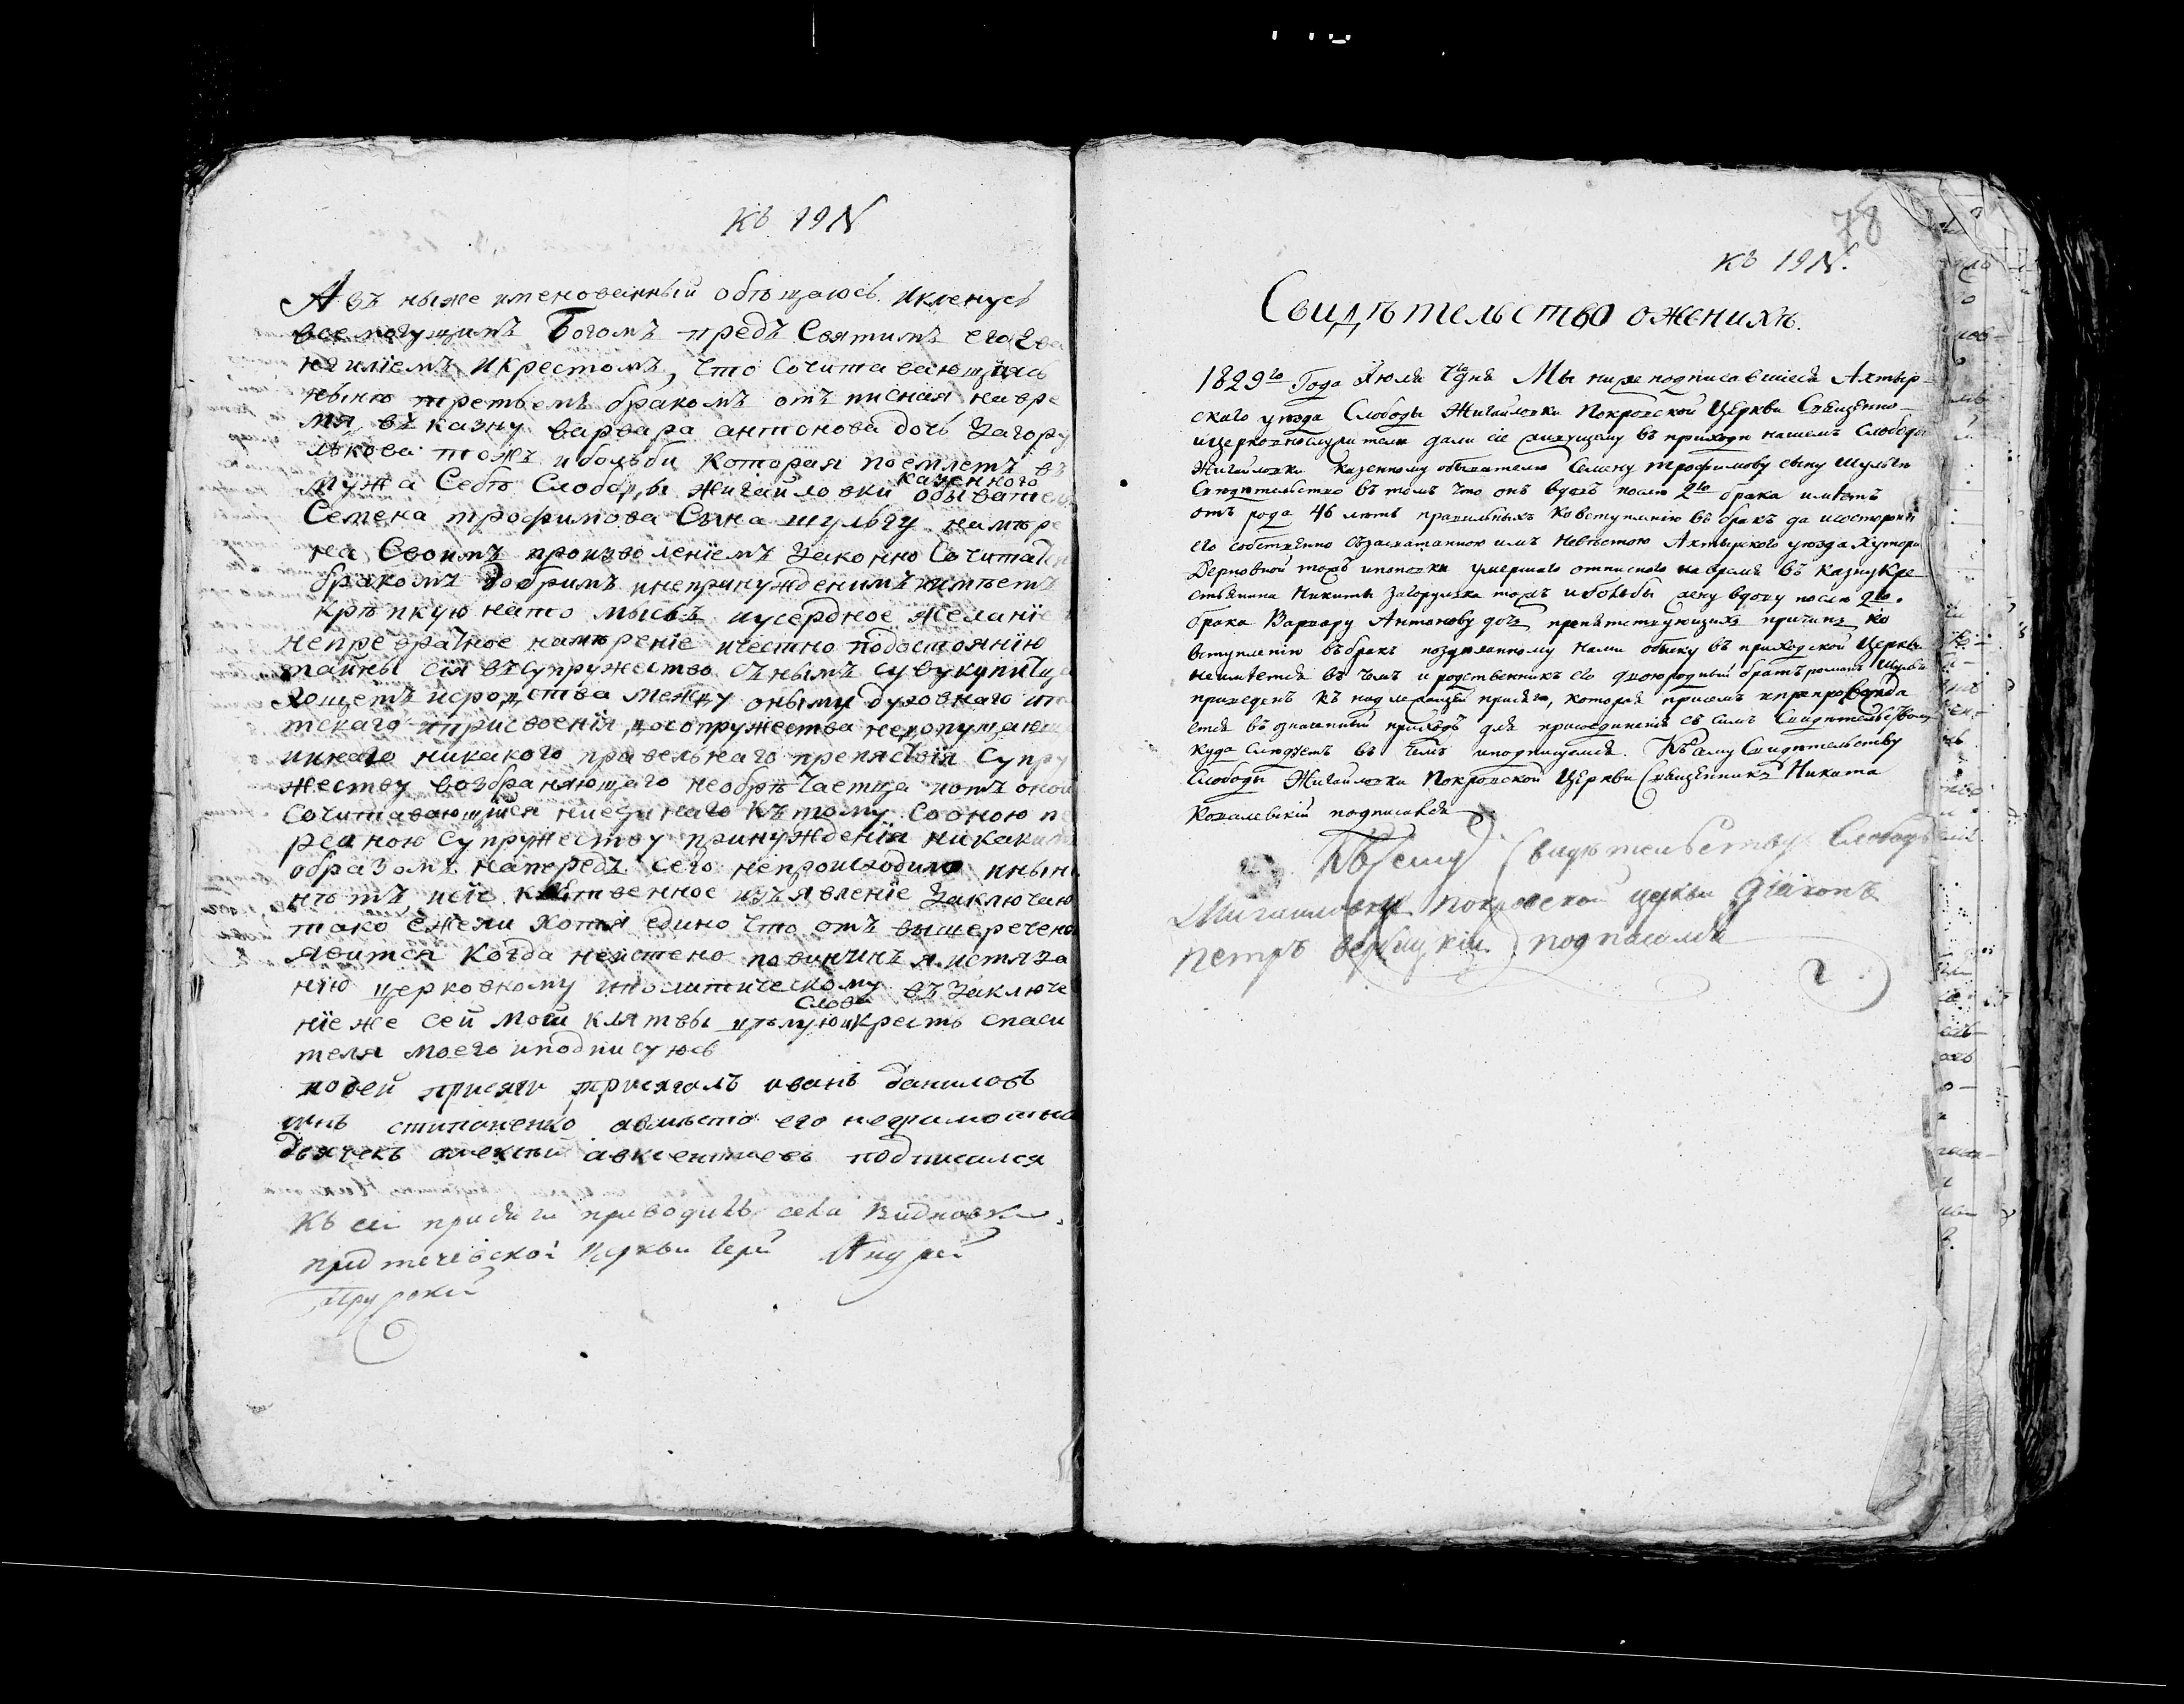 Къ 19 N
Азъ ныже именованный обѣщаюсь и кленусь
всемогущимъ Богомъ предъ Святимъ его Ева
нгилїемъ и крестомъ, что сочитавающаясь
ныню третьемъ бракомъ отписная на вре
мя въ казну варвара антонова дочь Загору
лькова тожъ и больби которая поемлетъ въ
мужа Себѣ Слободы жигайловки казенного обывателя
Семена трофимова Сына шульгу намѣре
на Своимъ произволенїемъ законно Сочитать
бракомъ добримъ и непринужденимъ имѣетъ
крѣпкую на то мысль и усердное желанїе
непревратное намѣренїе и честно подостоянїю
тайны сїя въ супружество съ нымъ сувукупитися
хощетъ и сродства между оными духовнаго и пло
тскаго и присвоенїя, до сопружества недопущающ
и инаго никакого правельнаго препяствїя Супру
жеству возбраняющаго необрѣчаетца и отъ оной
Сочитавающийся ниединаго къ тому Со оною п
реаною Супружеству принужденїя никаким
образомъ напередъ сего непроисходило и нынѣ
нѣтъ, и сїе клятвенное изъявленїе заключаю
тако ежели хотя едино что отъ вышеречено
явится когда неистено повиненъ я истяза
нїю церковному и политическому въ заключе
нїе же сей моей клятвы цѣлую слова и крестъ спаси
теля моего и подписуюсь
по сей присяги присягалъ иванъ даниловъ
сынъ стипаненко авмѣсто его неграмотна
дьячекъ алексѣй авксентиевъ подписался
Къ сей присяги приводилъ села
предтечевской Церкви Іерей Андрей
78
Къ 19 N.
Свидѣтельство о женихѣ.
1829го Года Июля дня Мы ниже подписавшиеся Ахтыр-
скаго уѣзда Слободы Жигайловки Покровской Церкви Священно-
и церковнослужители дали сіе живущему въ приходѣ нашемъ Слободы
Жигайловки казенному обывателю Семену трофимову сыну Шульгѣ
Свидѣтельство въ томъ что онъ вдовъ послѣ 2го брака имѣетъ
отъ рода 46 лѣтъ правильныхъ ко вступленію въ бракъ да и со стороны
его собственно съ засватанною имъ невѣстою Ахтырского уѣзда Хутора
Дерновой тожъ и поповки умершаго отписного на время въ казну Кре-
стьянина Никиты Загорулька тожъ и больбы жену вдову послѣ 2го
брака Варвару Антонову дочь препятствующихъ причинъ ко
вступленію въ бракъ по здѣланному нами обыску въ приходской Церкви
неимѣется въ чемъ и родственникъ его двоюродный братъ романъ Шульга
приведенъ къ надлежащей присягѣ, которая при семъ и препровожда
ется въ означенный приходъ для присоединенія съ симъ Свидѣтельствомъ
куда слѣдуетъ въ чемъ и подписуемся. Къ сему Свидѣтельству
Слободы Жигайловки Покровской Церкви Священникъ Никита
Ковалевскій подписался
Къ сему Свидѣтельству Слободы
Жигайловки покровской церкви діаконъ
петръ вербицкій подписался